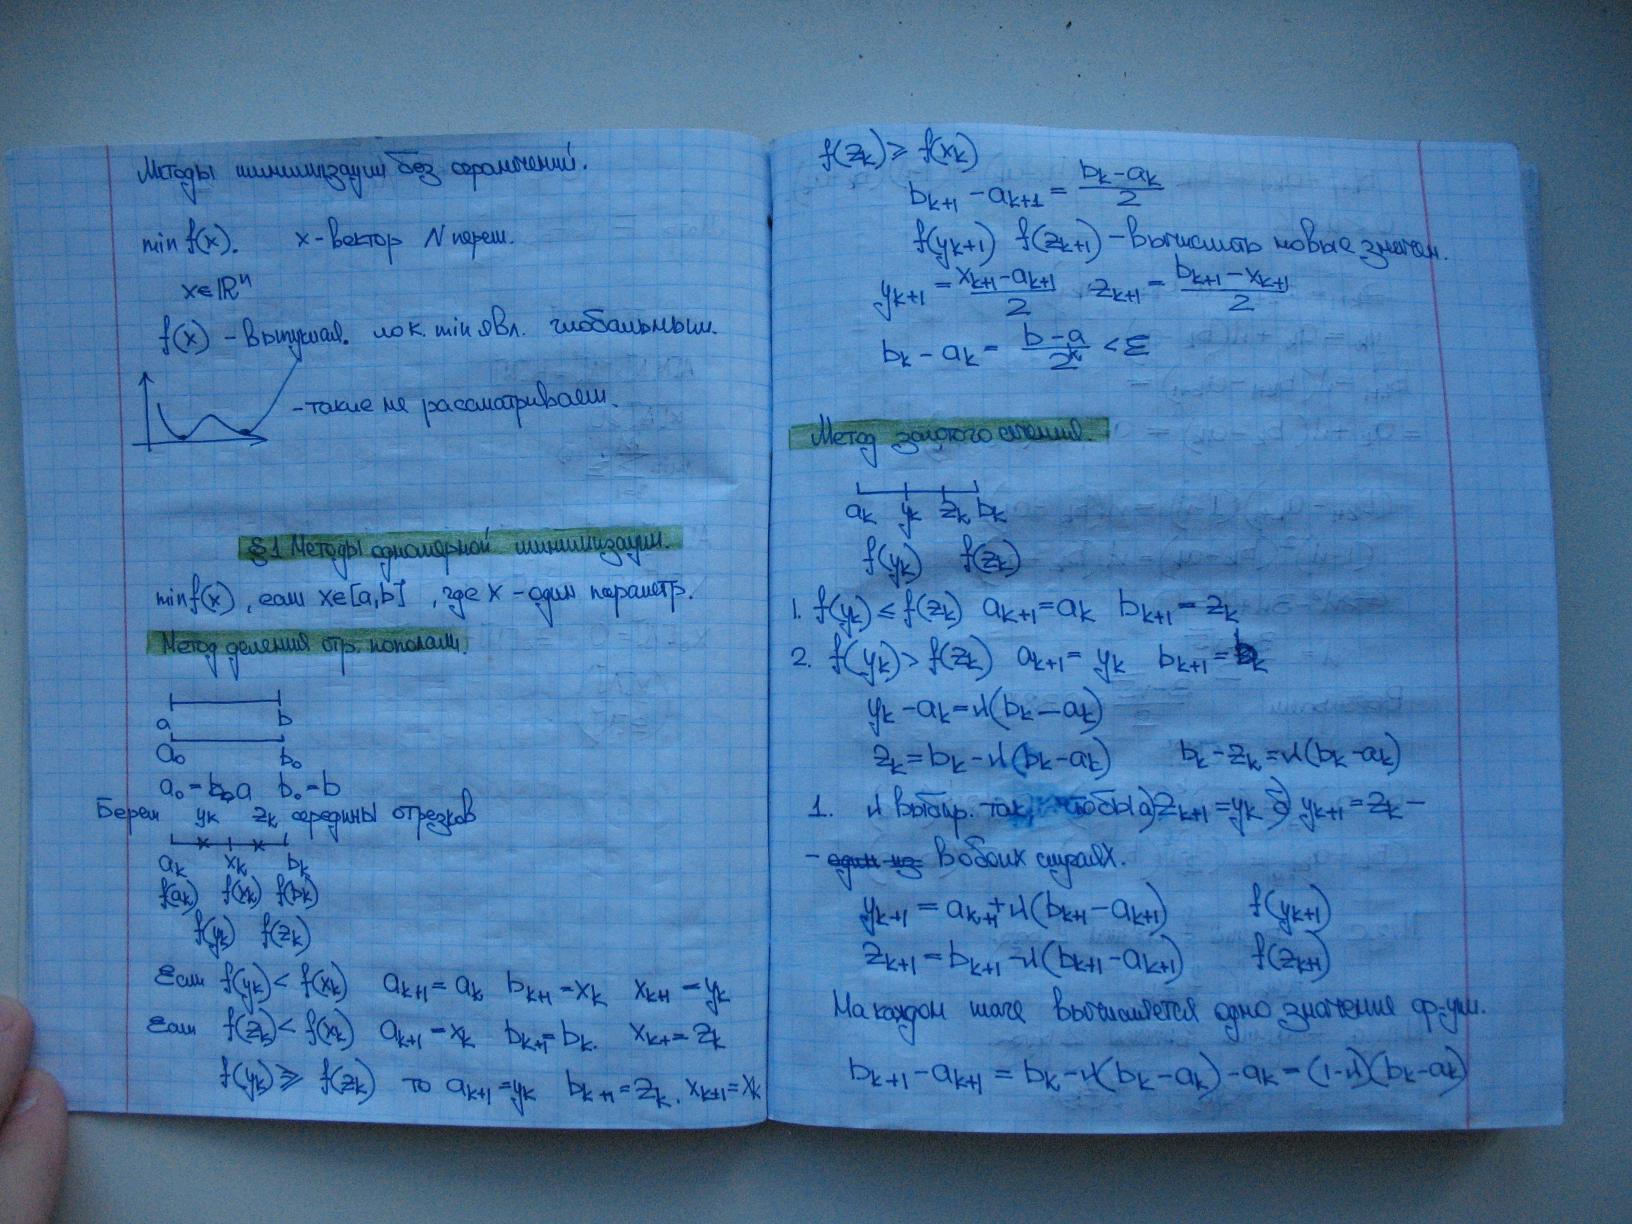 Методы минимизации без ограничений.
min f(x). x-вектор N перем.
x∈ℝⁿ
f(x) - выпуклая. лок. min явл. глобальным.
-такие не рассматриваем.
§1 Методы одномерной минимизации.
min f(x), если x∈[a,b], где x - один параметр.
Метод деления отр. пополам.
a b
a₀ b₀
a₀ = a b₀ = b
Берем yₖ zₖ середины отрезков
aₖ xₖ bₖ
f(aₖ) f(xₖ) f(bₖ)
f(yₖ) f(zₖ)
Если f(yₖ) < f(xₖ) aₖ₊₁ = aₖ bₖ₊₁ = xₖ xₖ₊₁ = yₖ
Если f(zₖ) < f(xₖ) aₖ₊₁ = xₖ bₖ₊₁ = bₖ. xₖ₊₁ = zₖ
f(yₖ) ⩾ f(zₖ) то aₖ₊₁ = yₖ bₖ₊₁ = zₖ, xₖ₊₁ = xₖ
f(zₖ) ⩾ f(xₖ)
bₖ₊₁ - aₖ₊₁ = (bₖ - aₖ)/2
f(yₖ₊₁) f(zₖ₊₁) - вычислить новые значен.
yₖ₊₁ = (xₖ₊₁ - aₖ₊₁)/2, zₖ₊₁ = (bₖ₊₁ - xₖ₊₁)/2
bₖ - aₖ = (b - a)/2ᵏ < ε
Метод золотого сечения.
aₖ yₖ zₖ bₖ
f(yₖ) f(zₖ)
1. f(yₖ) ≤ f(zₖ) aₖ₊₁ = aₖ bₖ₊₁ = zₖ
2. f(yₖ) > f(zₖ) aₖ₊₁ = yₖ bₖ₊₁ = bₖ
yₖ - aₖ = λ(bₖ - aₖ)
zₖ = bₖ - λ(bₖ - aₖ) bₖ - zₖ = λ(bₖ - aₖ)
1. λ выбир. так, чтобы а) zₖ₊₁ = yₖ б) yₖ₊₁ = zₖ -
- один из в обоих случаях.
yₖ₊₁ = aₖ₊₁ + λ(bₖ₊₁ - aₖ₊₁) f(yₖ₊₁)
zₖ₊₁ = bₖ₊₁ - λ(bₖ₊₁ - aₖ₊₁) f(zₖ₊₁)
На каждом шаге вычисляется одно значение ф-ции.
bₖ₊₁ - aₖ₊₁ = bₖ - λ(bₖ - aₖ) - aₖ = (1-λ)(bₖ - aₖ)